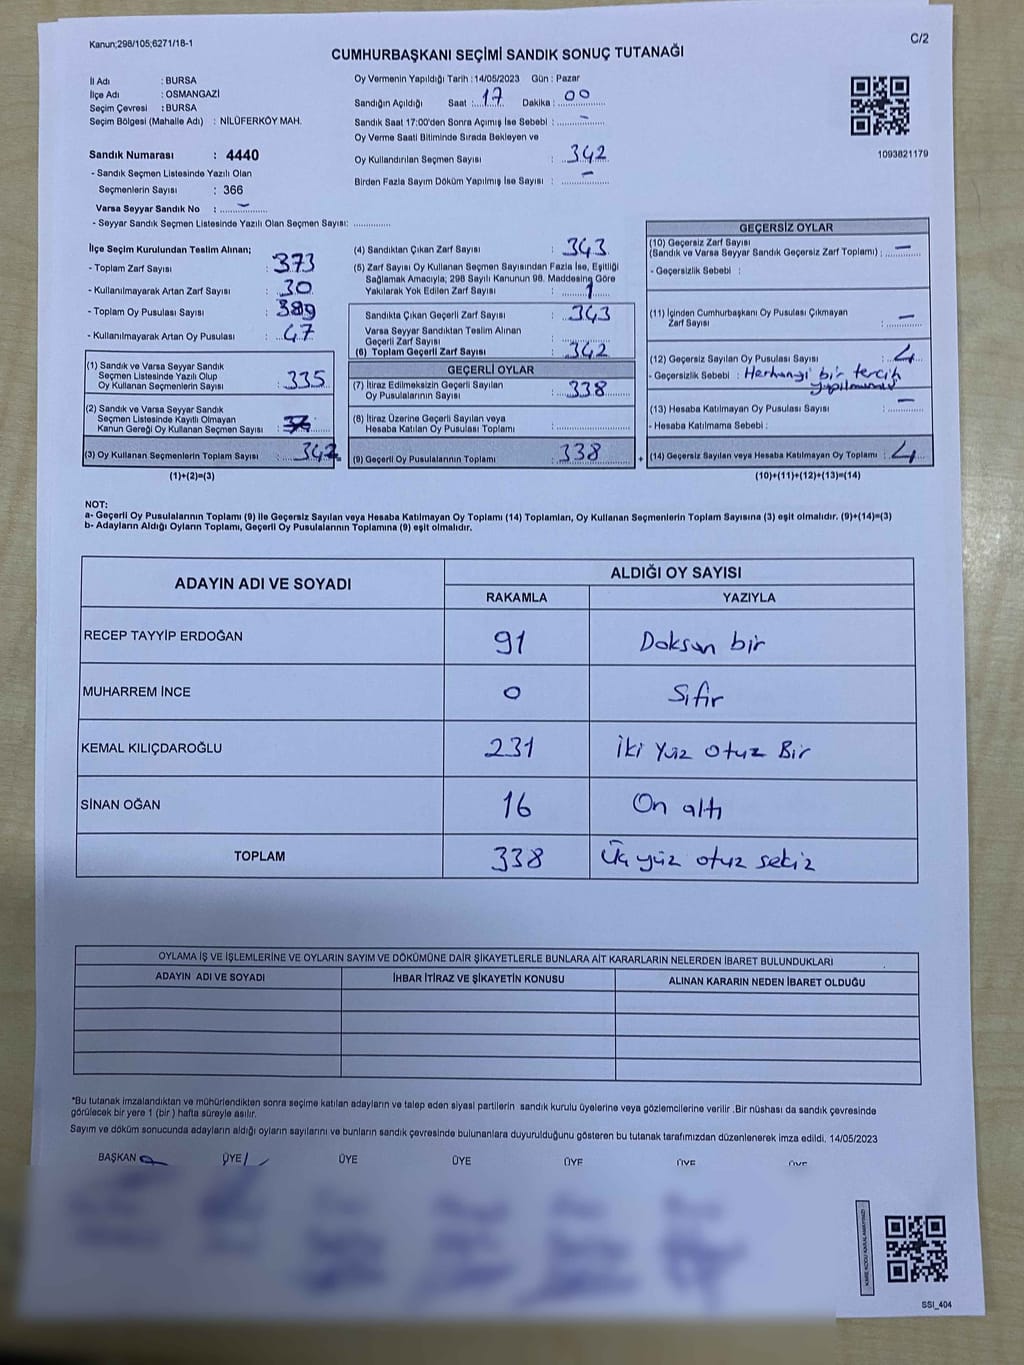 Kanun;298/105;6271/18-1
C/2
CUMHURBAŞKANI SEÇİMİ SANDIK SONUÇ TUTANAĞI
İl Adı : BURSA
İlçe Adı : OSMANGAZİ
Seçim Çevresi : BURSA
Seçim Bölgesi (Mahalle Adı) : NİLÜFERKÖY MAH.
Sandık Numarası : 4440
- Sandık Seçmen Listesinde Yazılı Olan
Seçmenlerin Sayısı : 366
Varsa Seyyar Sandık No : –
- Seyyar Sandık Seçmen Listesinde Yazılı Olan Seçmen Sayısı:
Oy Vermenin Yapıldığı Tarih : 14/05/2023 Gün : Pazar
Sandığın Açıldığı Saat : 17 Dakika : 00
Sandık Saat 17:00'den Sonra Açımış İse Sebebi : –
Oy Verme Saati Bitiminde Sırada Bekleyen ve
Oy Kullandırılan Seçmen Sayısı : 342
Birden Fazla Sayım Döküm Yapılmış İse Sayısı : –
1093821179
İlçe Seçim Kurulundan Teslim Alınan;
- Toplam Zarf Sayısı : 373
- Kullanılmayarak Artan Zarf Sayısı : 30
- Toplam Oy Pusulası Sayısı : 389
- Kullanılmayarak Artan Oy Pusulası : 47
(1) Sandık ve Varsa Seyyar Sandık
Seçmen Listesinde Yazılı Olup
Oy Kullanan Seçmenlerin Sayısı : 335
(2) Sandık ve Varsa Seyyar Sandık
Seçmen Listesinde Kayıtlı Olmayan
Kanun Gereği Oy Kullanan Seçmen Sayısı :
(3) Oy Kullanan Seçmenlerin Toplam Sayısı : 342
(1)+(2)=(3)
(4) Sandıktan Çıkan Zarf Sayısı : 343
(5) Zarf Sayısı Oy Kullanan Seçmen Sayısından Fazla İse, Eşitliği
Sağlamak Amacıyla; 298 Sayılı Kanunun 98. Maddesine Göre
Yakılarak Yok Edilen Zarf Sayısı : 1
Sandıkta Çıkan Geçerli Zarf Sayısı : 343
Varsa Seyyar Sandıktan Teslim Alınan
Geçerli Zarf Sayısı
(6) Toplam Geçerli Zarf Sayısı : 342
GEÇERLİ OYLAR
(7) İtiraz Edilmeksizin Geçerli Sayılan
Oy Pusulalarının Sayısı : 338
(8) İtiraz Üzerine Geçerli Sayılan veya
Hesaba Katılan Oy Pusulası Toplamı :
(9) Geçerli Oy Pusulalarının Toplamı : 338
+
GEÇERSİZ OYLAR
(10) Geçersiz Zarf Sayısı
(Sandık ve Varsa Seyyar Sandık Geçersiz Zarf Toplamı) : –
- Geçersizlik Sebebi :
(11) İçinden Cumhurbaşkanı Oy Pusulası Çıkmayan
Zarf Sayısı : –
(12) Geçersiz Sayılan Oy Pusulası Sayısı : 4
- Geçersizlik Sebebi : Herhangi bir tercih
yapılmamış
(13) Hesaba Katılmayan Oy Pusulası Sayısı : –
- Hesaba Katılmama Sebebi :
(14) Geçersiz Sayılan veya Hesaba Katılmayan Oy Toplamı : 4
(10)+(11)+(12)+(13)=(14)
NOT:
a- Geçerli Oy Pusulalarının Toplamı (9) ile Geçersiz Sayılan veya Hesaba Katılmayan Oy Toplamı (14) Toplamları, Oy Kullanan Seçmenlerin Toplam Sayısına (3) eşit olmalıdır. (9)+(14)=(3)
b- Adayların Aldığı Oyların Toplamı, Geçerli Oy Pusulalarının Toplamına (9) eşit olmalıdır.
ADAYIN ADI VE SOYADI ALDIĞI OY SAYISI
RAKAMLA YAZIYLA
RECEP TAYYİP ERDOĞAN 91 Doksan bir
MUHARREM İNCE 0 Sıfır
KEMAL KILIÇDAROĞLU 231 İki Yüz otuz Bir
SİNAN OĞAN 16 On altı
TOPLAM 338 Üç yüz otuz sekiz
OYLAMA İŞ VE İŞLEMLERİNE VE OYLARIN SAYIM VE DÖKÜMÜNE DAİR ŞİKAYETLERLE BUNLARA AİT KARARLARIN NELERDEN İBARET BULUNDUKLARI
ADAYIN ADI VE SOYADI İHBAR İTİRAZ VE ŞİKAYETİN KONUSU ALINAN KARARIN NEDEN İBARET OLDUĞU
*Bu tutanak imzalandıktan ve mühürlendikten sonra seçime katılan adayların ve talep eden siyasi partilerin sandık kurulu üyelerine veya gözlemcilerine verilir .Bir nüshası da sandık çevresinde
görülecek bir yere 1 (bir ) hafta süreyle asılır.
Sayım ve döküm sonucunda adayların aldığı oyların sayılarını ve bunların sandık çevresinde bulunanlara duyurulduğunu gösteren bu tutanak tarafımızdan düzenlenerek imza edildi. 14/05/2023
BAŞKAN ÜYE ÜYE ÜYE ÜYE ÜYE ÜYE
SSI_404